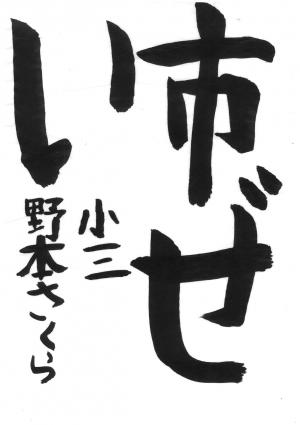 市ぜ
い
小三
野本さくら